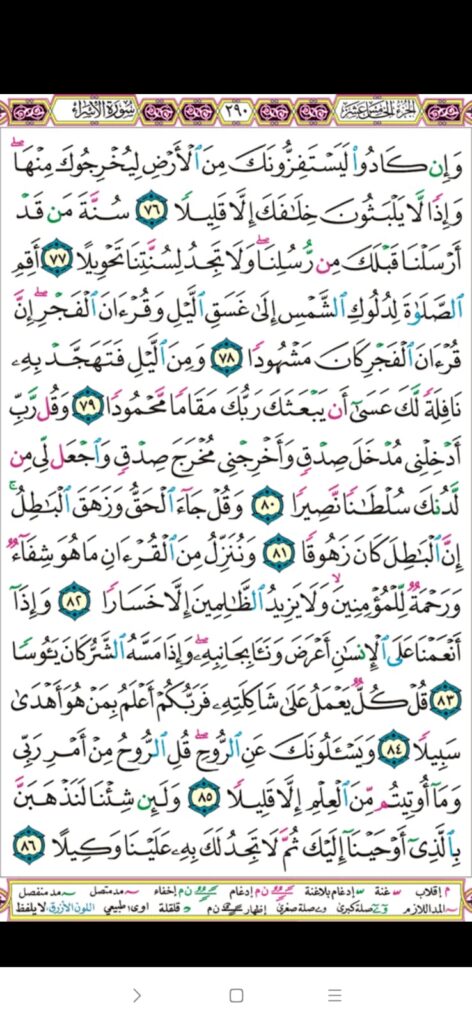 سُورَةُ الإِسْرَاءِ ٢٩٠ الجُزْءُ الخَامِسَ عَشَرَ
وَإِن كَادُوا۟ لَيَسْتَفِزُّونَكَ مِنَ ٱلْأَرْضِ لِيُخْرِجُوكَ مِنْهَا ۖ
وَإِذًا لَّا يَلْبَثُونَ خِلَـٰفَكَ إِلَّا قَلِيلًا ٧٦ سُنَّةَ مَن قَدْ
أَرْسَلْنَا قَبْلَكَ مِن رُّسُلِنَا ۖ وَلَا تَجِدُ لِسُنَّتِنَا تَحْوِيلًا ٧٧ أَقِمِ
ٱلصَّلَوٰةَ لِدُلُوكِ ٱلشَّمْسِ إِلَىٰ غَسَقِ ٱلَّيْلِ وَقُرْءَانَ ٱلْفَجْرِ ۖ إِنَّ
قُرْءَانَ ٱلْفَجْرِ كَانَ مَشْهُودًا ٧٨ وَمِنَ ٱلَّيْلِ فَتَهَجَّدْ بِهِۦ
نَافِلَةً لَّكَ عَسَىٰٓ أَن يَبْعَثَكَ رَبُّكَ مَقَامًا مَّحْمُودًا ٧٩ وَقُل رَّبِّ
أَدْخِلْنِى مُدْخَلَ صِدْقٍ وَأَخْرِجْنِى مُخْرَجَ صِدْقٍ وَٱجْعَل لِّى مِن
لَّدُنكَ سُلْطَـٰنًا نَّصِيرًا ٨٠ وَقُلْ جَآءَ ٱلْحَقُّ وَزَهَقَ ٱلْبَـٰطِلُ ۚ
إِنَّ ٱلْبَـٰطِلَ كَانَ زَهُوقًا ٨١ وَنُنَزِّلُ مِنَ ٱلْقُرْءَانِ مَا هُوَ شِفَآءٌ
وَرَحْمَةٌ لِّلْمُؤْمِنِينَ ۙ وَلَا يَزِيدُ ٱلظَّـٰلِمِينَ إِلَّا خَسَارًا ٨٢ وَإِذَآ
أَنْعَمْنَا عَلَى ٱلْإِنسَـٰنِ أَعْرَضَ وَنَـَٔا بِجَانِبِهِۦ ۖ وَإِذَا مَسَّهُ ٱلشَّرُّ كَانَ يَـُٔوسًا
٨٣ قُلْ كُلٌّ يَعْمَلُ عَلَىٰ شَاكِلَتِهِۦ فَرَبُّكُمْ أَعْلَمُ بِمَنْ هُوَ أَهْدَىٰ
سَبِيلًا ٨٤ وَيَسْـَٔلُونَكَ عَنِ ٱلرُّوحِ ۖ قُلِ ٱلرُّوحُ مِنْ أَمْرِ رَبِّى
وَمَآ أُوتِيتُم مِّنَ ٱلْعِلْمِ إِلَّا قَلِيلًا ٨٥ وَلَئِن شِئْنَا لَنَذْهَبَنَّ
بِٱلَّذِىٓ أَوْحَيْنَآ إِلَيْكَ ثُمَّ لَا تَجِدُ لَكَ بِهِۦ عَلَيْنَا وَكِيلًا ٨٦
م إقلاب غنة إدغام بلاغنة ن م إدغام ن م إخفاء مد متصل مد منفصل
المد اللازم صلة كبرى صلة صغرى إظهار ن م قلقلة اوى: طبيعي اللون الأزرق: لا يلفظ